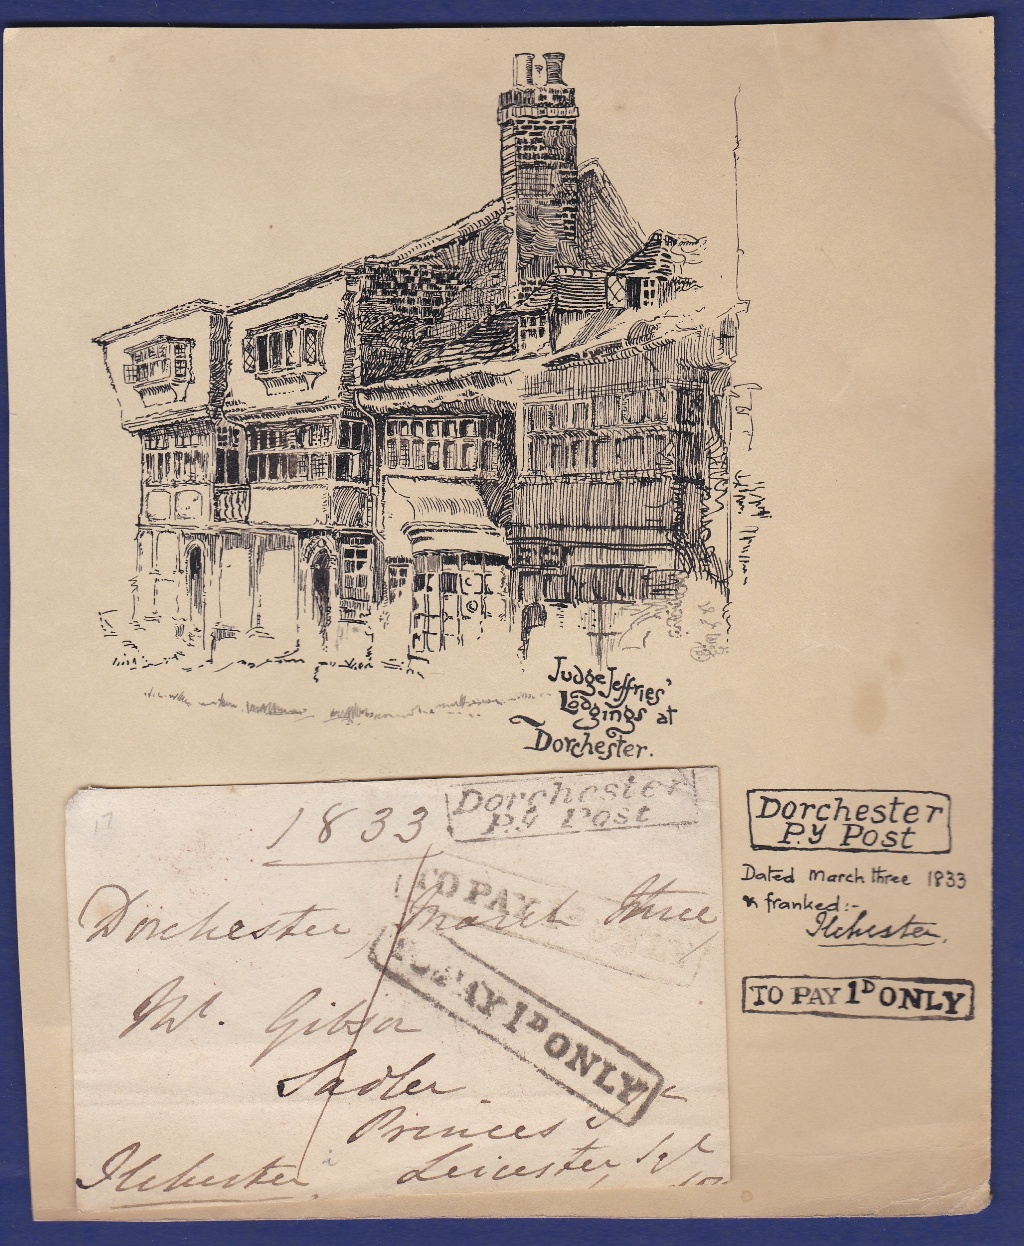 Judge Jeffries'
Lodgings at
Dorchester.
1833
Dorchester
P.y Post
Dorchester, March three
TO PAY ONLY
TO PAY 1D ONLY
Mr. Gibson
Sadler
Princes
Leicester Sqr
Ilchester
Dorchester
P.y Post
Dated March three 1833
& franked:-
Ilchester.
TO PAY 1D ONLY